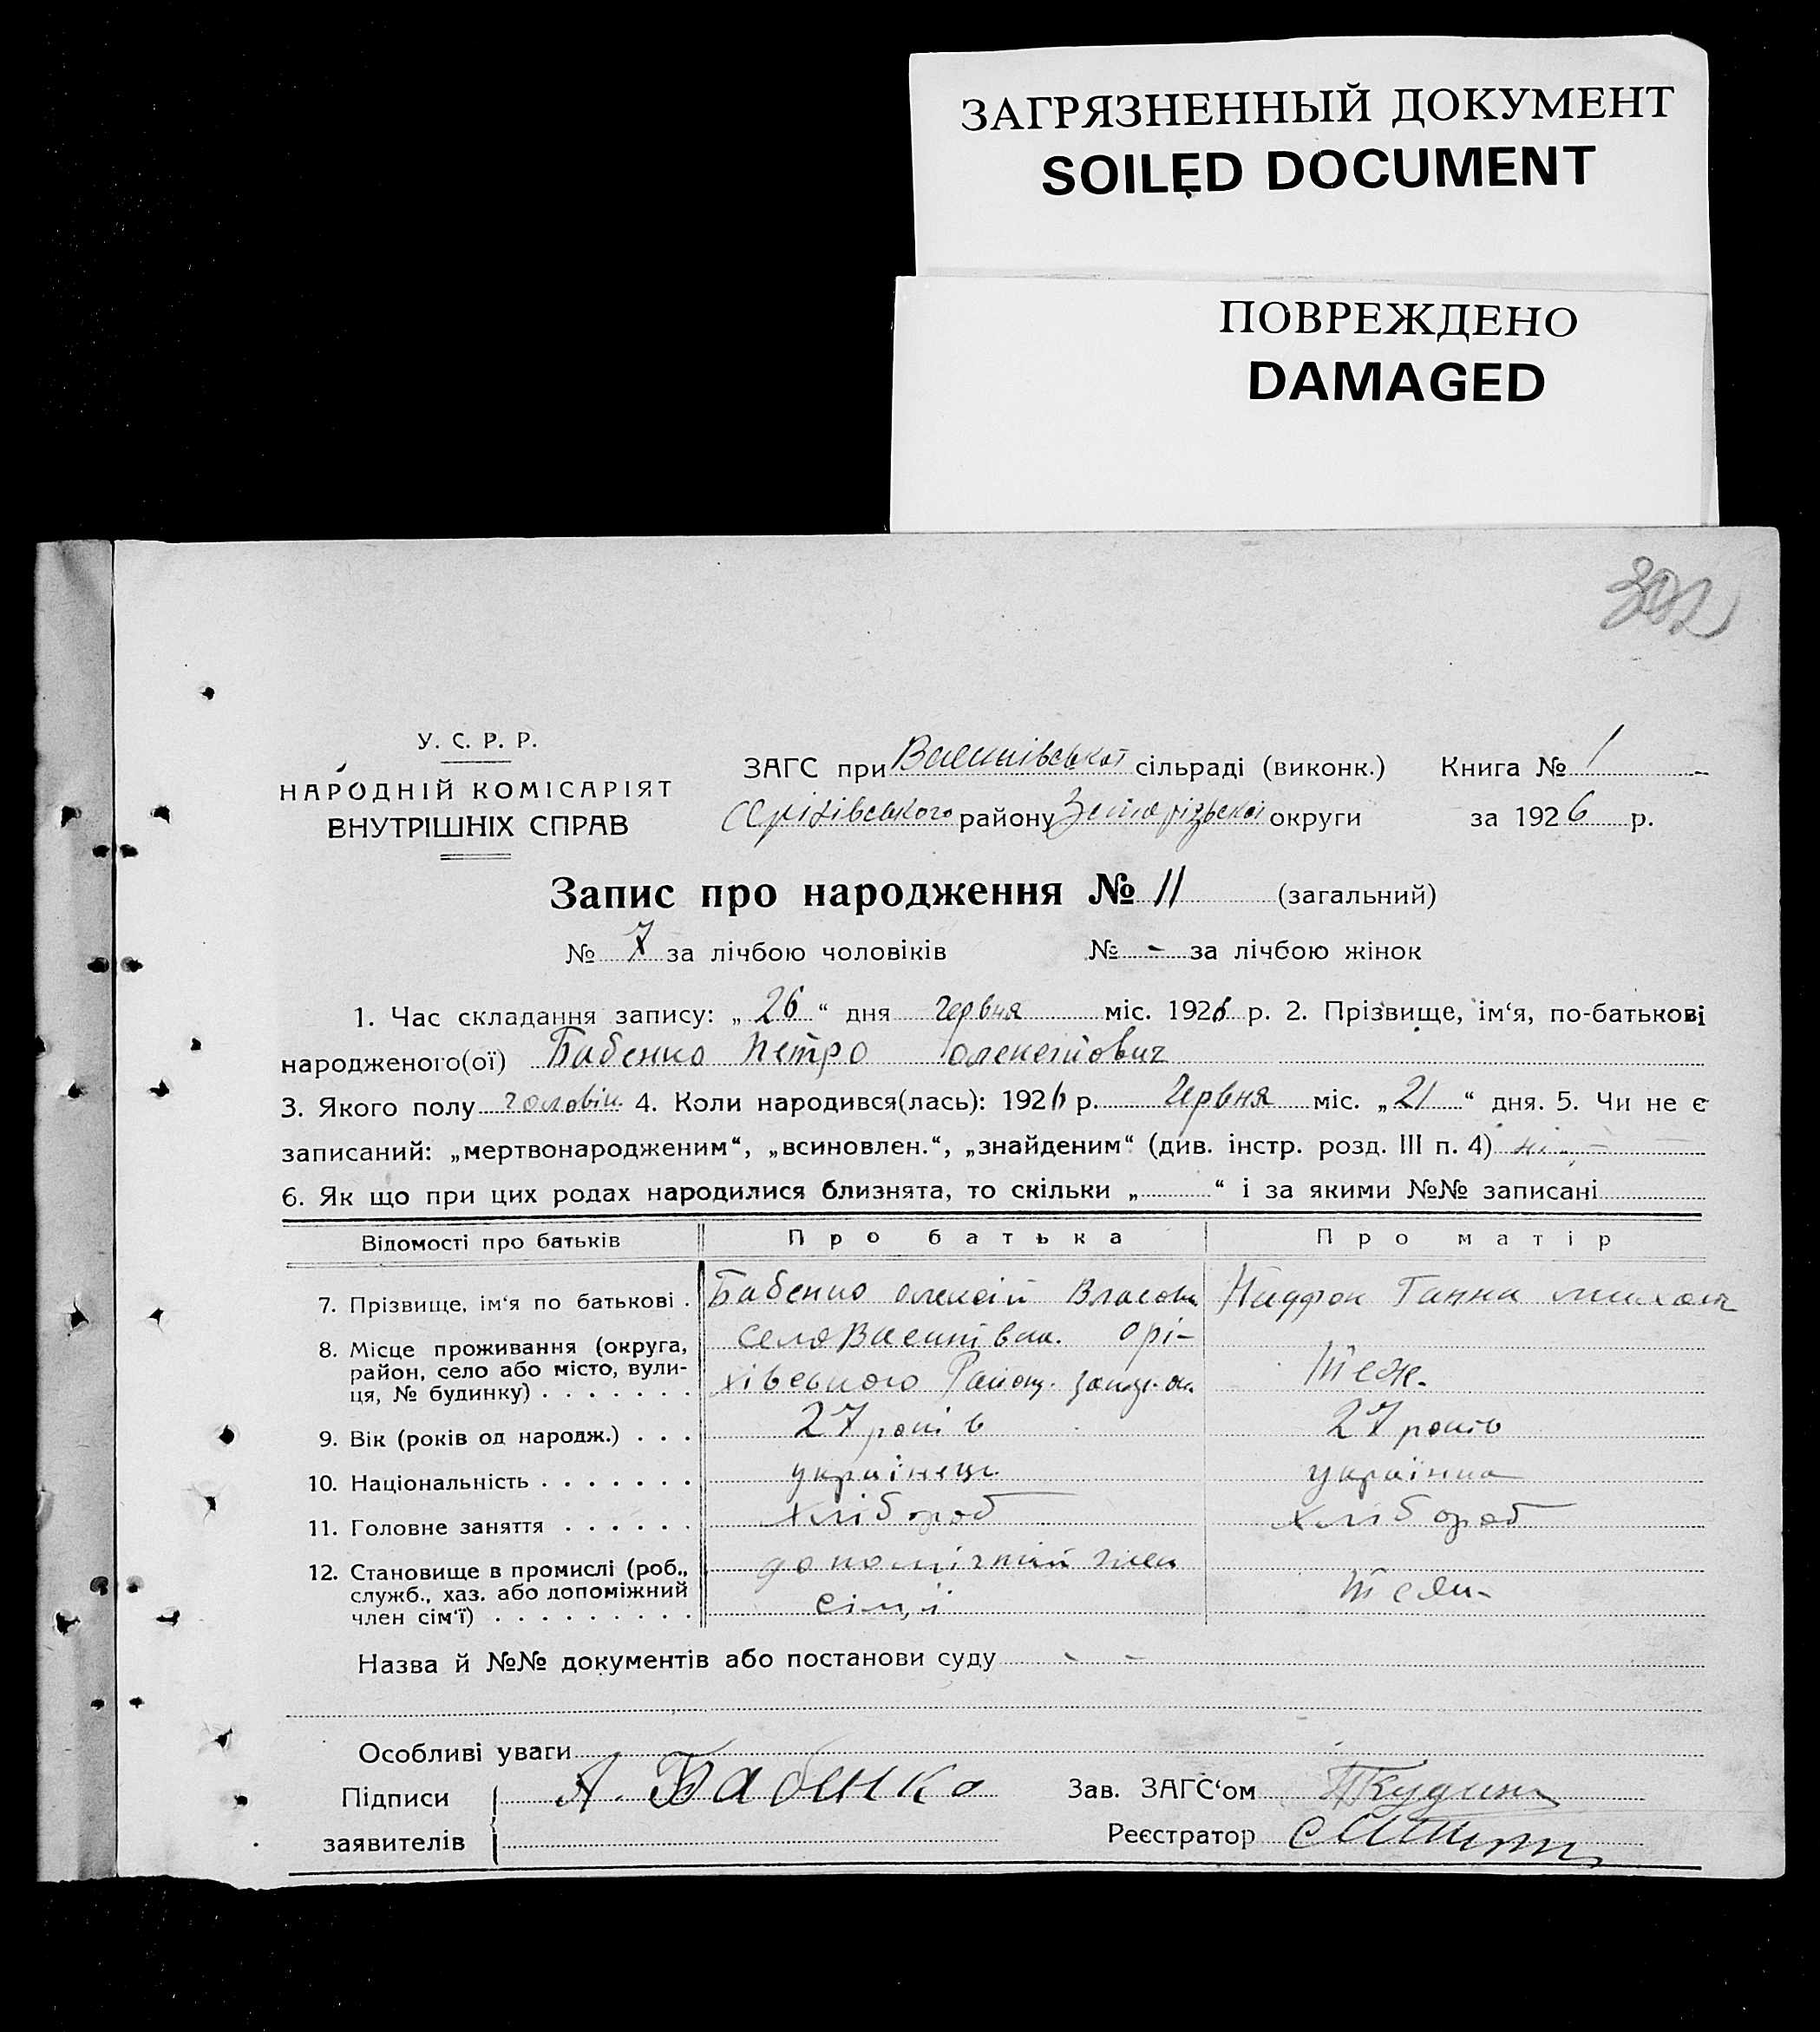 ЗАГРЯЗНЕННЫЙ ДОКУМЕНТ
SOILED DOCUMENT
ПОВРЕЖДЕНО
DAMAGED
302
У. С. Р. Р.
НАРОДНІЙ КОМІСАРІЯТ
ВНУТРІШНІХ СПРАВ
ЗАГС при сільраді (виконк.) Книга № 1
Оріхівського району округи за 1926 р.
Запис про народження № 11 (загальний)
№ 7 за лічбою чоловіків № - за лічбою жінок
1. Час складання запису: „ 26 “ дня червня міс. 1926 р. 2. Прізвище, ім‘я, по-батькові
народженого(ої) Бабенко Петро Олексійович
3. Якого полу чоловік 4. Коли народився(лась): 1926 р. Червня міс. „ 21 “ дня. 5. Чи не є
записаний: „мертвонародженим“, „всиновлен.“, „знайденим“ (див. інстр. розд. III п. 4) ні -
6. Як що при цих родах народилися близнята, то скільки „ “ і за якими №№ записані
Відомості про батьків Про батька Про матір
7. Прізвище, ім‘я по батькові . Бабенко Олексій Ганна
8. Місце проживання (округа, село Орі-
район, село або місто, вули-
ця, № будинку) . . . . . . . хівського Району. Теж.
9. Вік (років од народж.) . . . 27 років 27 років
10. Національність . . . . . . . українець українка
11. Головне заняття . . . . . . хлібороб хлібороб
12. Становище в промислі (роб., допомічний член
служб., хаз. або допоміжний
член сім‘ї) . . . . . . . . . сім,ї Теж-
Назва й №№ документів або постанови суду - -
Особливі уваги
Підписи А. Бабенко Зав. ЗАГС‘ом
заявителів Реєстратор